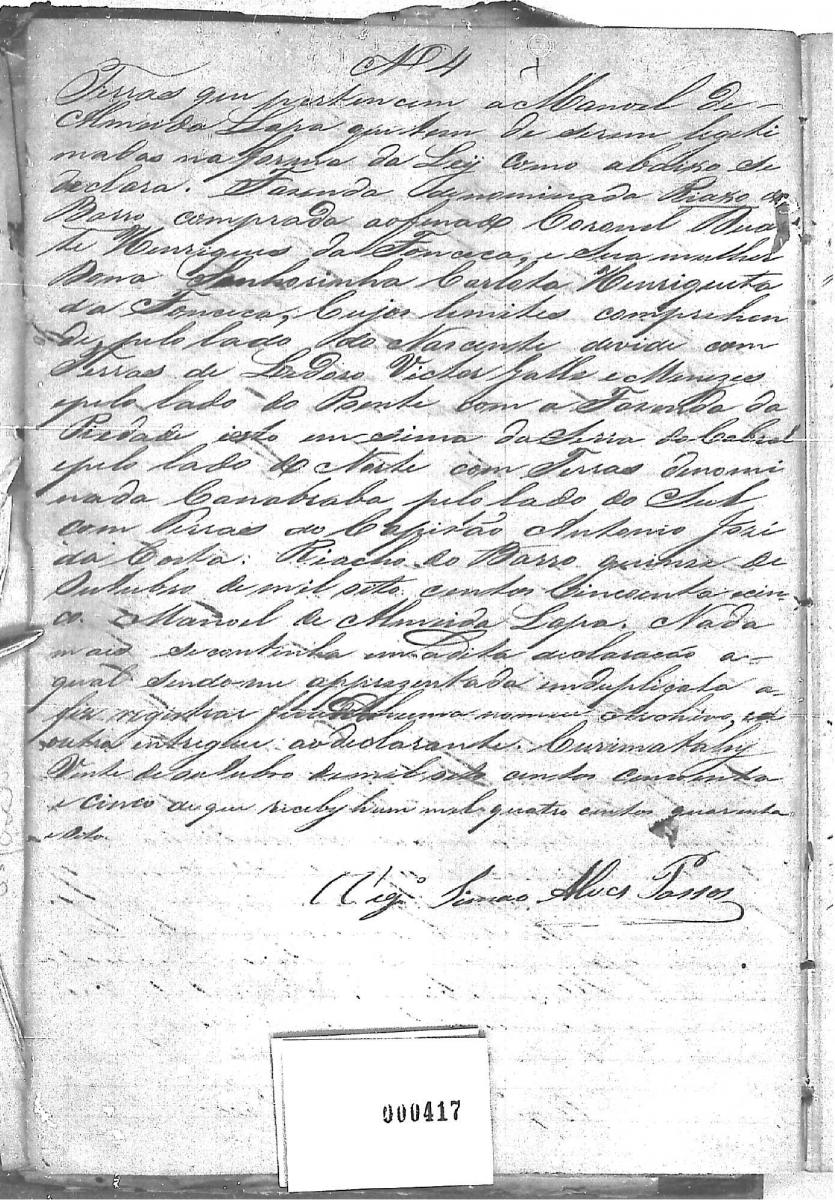 Nº 4
Terras que pertencem a Manoel de
Almeida Lapa que tem de serem legeti
madas na forma da Ley como abaixo se
declara. Fazenda denominada Riaxo do
Barro comprada ao finado Coronel Dua
te Henriques da Fonceca, e Sua mulher
Dona Senhorinha Carlota Henriqueta
da Fonceca, Cujos limites comprehen
de pelo lado do Nascente devide com
Terras de Victor e Menezes
e pelo lado do Poente com a Fazenda da
Piedade isto em sima da Serra do Cabral
e pelo lado do Norte com Terras denomi
nada Canabraba pelo lado do Sul
com Terras do Capitão Antonio José
da Costa. Riacho do Barro quinze de
Outubro de mil oito centos Cincoenta e cin-
co. Manoel de Almeida Lapa. Nada
mais se continha em a dita declaração a-
qual sendo-me apprezentada em duplicata a-
fiz registrar huma no meu Archivo, e a
outra entregue ao declarante. Curimatahy
Vinte de outubro de mil oito centos concoenta
e cinco de que receby hum mil quatro centos quarenta
e oito.
Vigº Simao Alves Passos
000417